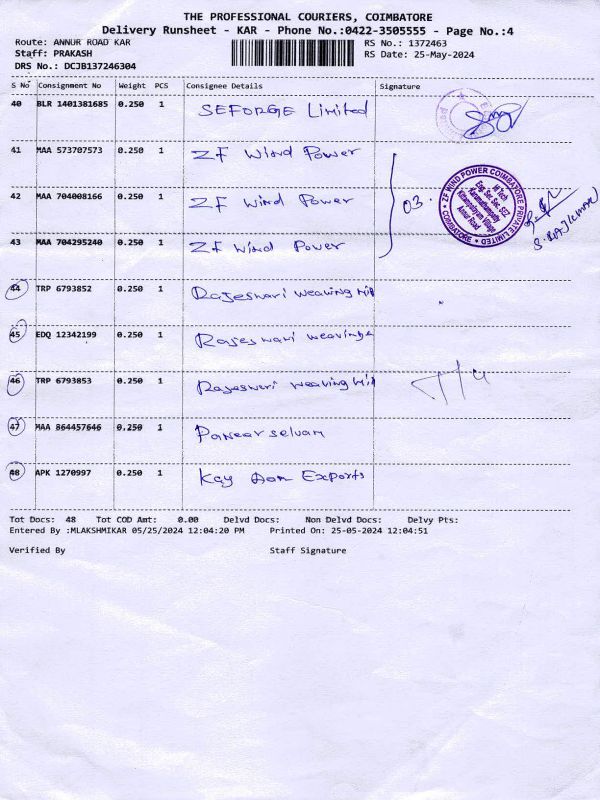 THE PROFESSIONAL COURIERS, COIMBATORE
Delivery Runsheet - KAR - Phone No.:0422-3505555 - Page No.:4
Route: ANNUR ROAD KAR RS No.: 1372463
Staff: PRAKASH RS Date: 25-May-2024
DRS No.: DCJB137246304
S No Consignment No Weight PCS Consignee Details Signature
40 BLR 1401381685 0.250 1 SEFORGE Limited
41 MAA 573707573 0.250 1 ZF Wind Power
42 MAA 704008166 0.250 1 ZF Wind Power 03.
ZF WIND POWER COIMBATORE PRIVATE LIMITED
COIMBATORE
Annur Road
S. RAJKUMAR
43 MAA 704295240 0.250 1 ZF Wind Power
44 TRP 6793852 0.250 1 Rajeswari weaving Mill
45 EDQ 12342199 0.250 1 Rajeswari weaving
46 TRP 6793853 0.250 1 Rajeswari weaving Mill
47 MAA 864457646 0.250 1 Paneerselvam
48 APK 1270997 0.250 1 Kay Aar Exports
Tot Docs: 48 Tot COD Amt: 0.00 Delvd Docs: Non Delvd Docs: Delvy Pts:
Entered By :MLAKSHMIKAR 05/25/2024 12:04:20 PM Printed On: 25-05-2024 12:04:51
Verified By Staff Signature